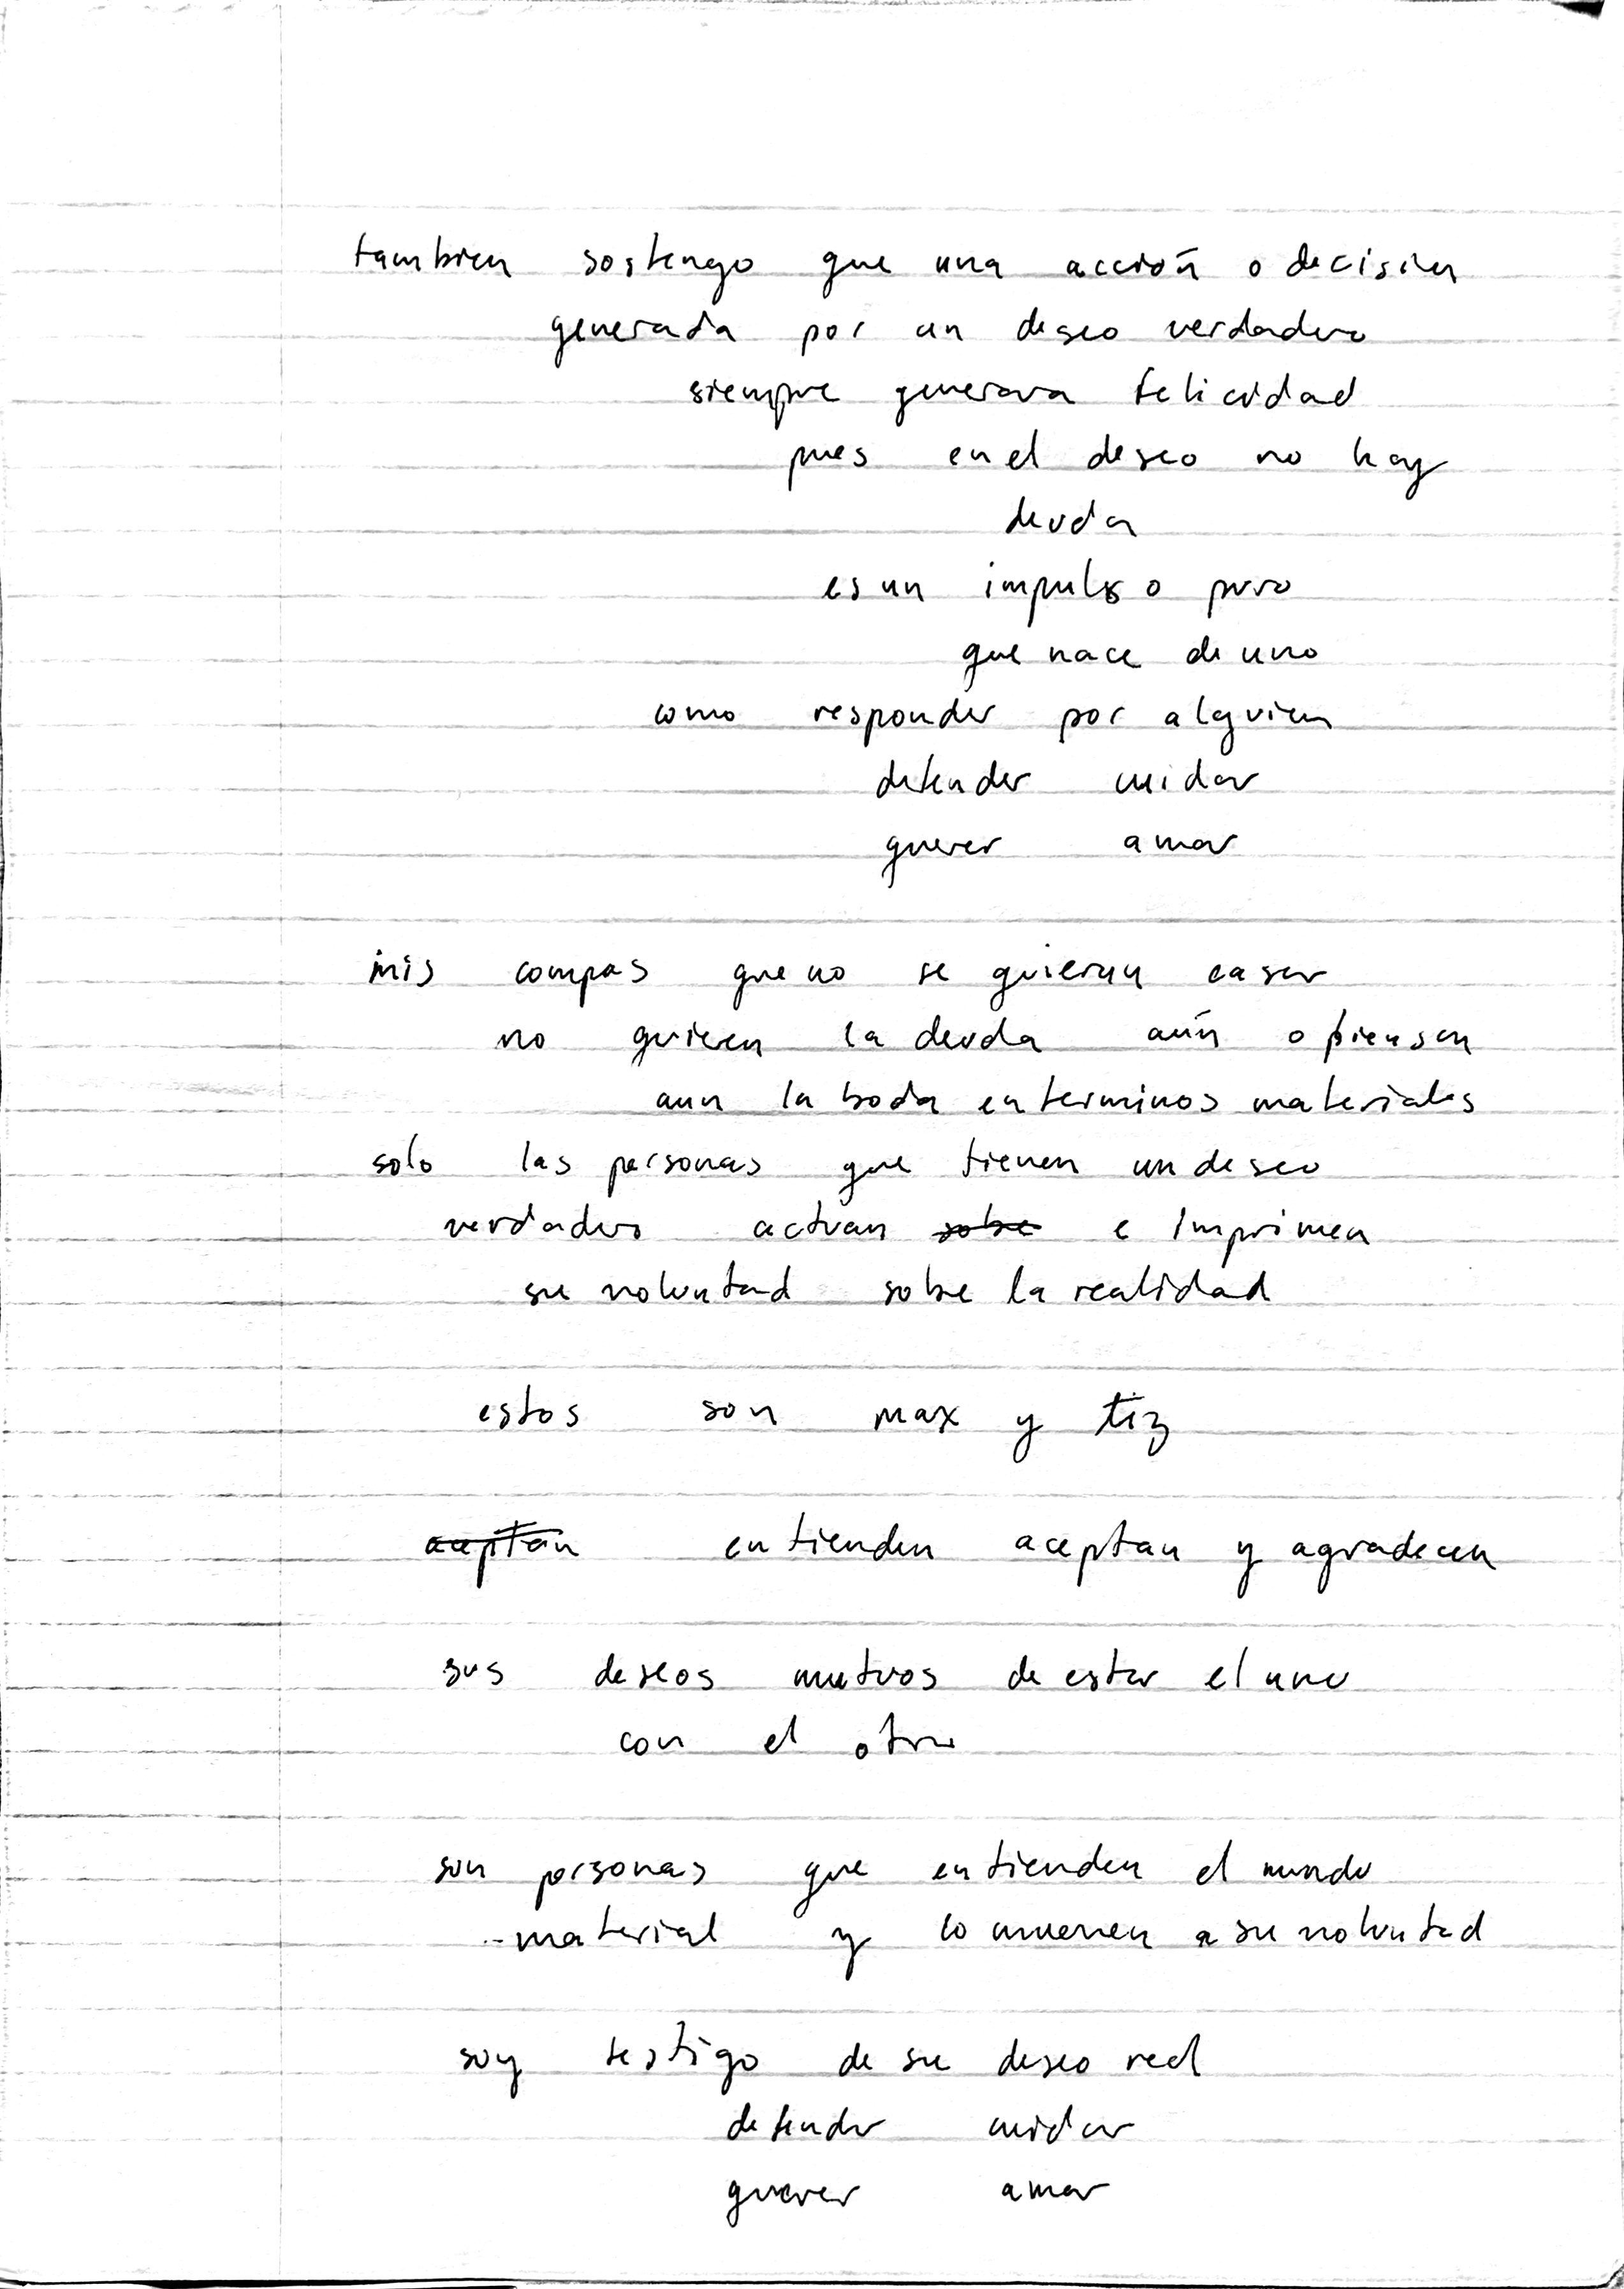 tambien sostengo que una acción o decision
generada por un deseo verdadero
siempre generara felicidad
pues en el deseo no hay
deuda
es un impulso puro
que nace de uno
como responder por alguien
defender cuidar
querer amar
mis compas que no se quieren casar
no quieren la deuda aún o piensan
aun la boda en terminos materiales
solo las personas que tienen un deseo
verdadero actuan sobre e imprimen
su voluntad sobre la realidad
estos son max y tiz
aceptan entienden aceptan y agradecen
sus deseos mutuos de estar el uno
con el otro
son personas que entienden el mundo
material y lo mueven a su voluntad
soy testigo de su deseo real
defender cuidar
querer amar